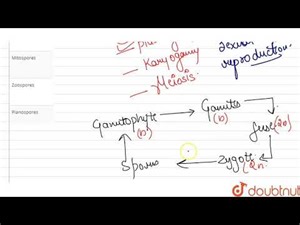 Mitospores
Zoospores
Planospores
sexual
reproduction.
— Karyogamy
— Meiosis.
Gametophyte
(n)
Gamete
(n)
fuse
(2n)
Zygote
(2n
Spores
doubtnut